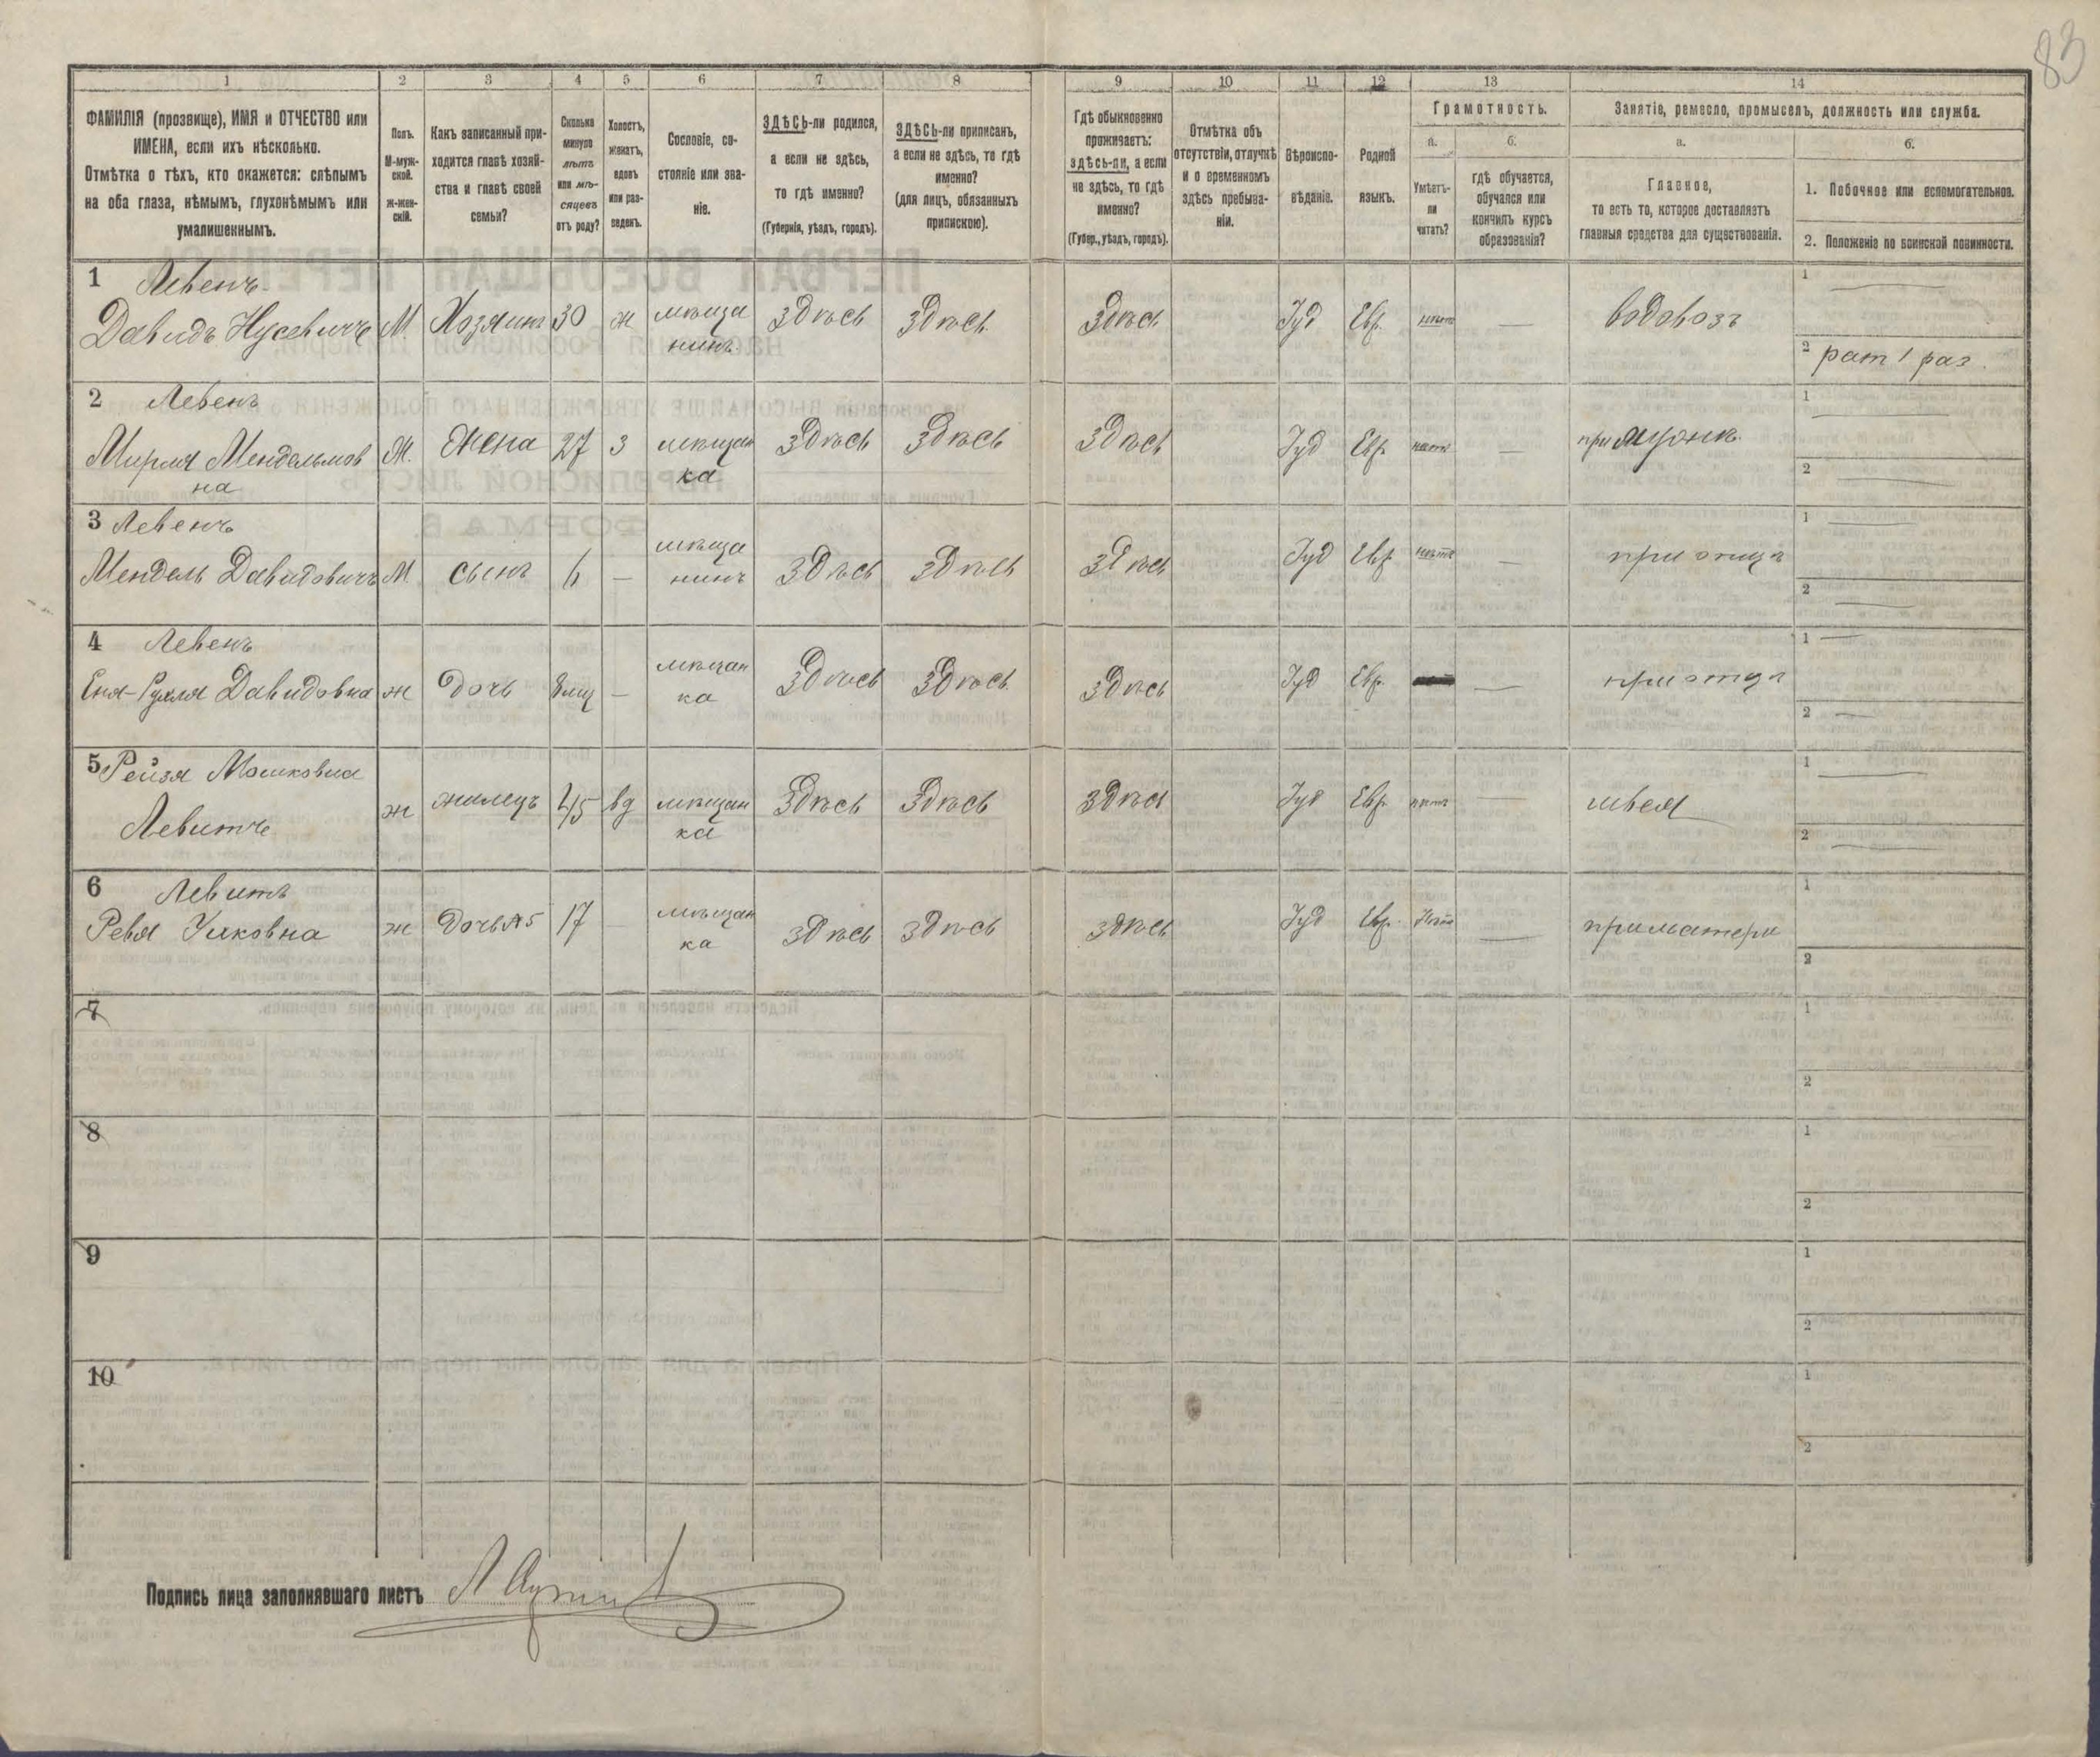 83
1 2 3 4 5 6 7 8 9 10 11 12 13 14
ФАМИЛІЯ (прозвище), ИМЯ и ОТЧЕСТВО или
ИМЕНА, если ихъ нѣсколько.
Отмѣтка о тѣхъ, кто окажется: слѣпымъ
на оба глаза, нѣмымъ, глухонѣмымъ или
умалишеннымъ.
Полъ.
М-муж-
ской.
Ж-жен-
скій.
Какъ записанный при-
ходится главѣ хозяй-
ства и главѣ своей
семьи?
Сколько
минуло
лѣтъ
или мѣ-
сяцевъ
отъ роду?
Холостъ,
женатъ,
вдовъ
или раз-
веденъ.
Сословіе, со-
стояніе или зва-
ніе.
ЗДѢСЬ-ли родился,
а если не здѣсь,
то гдѣ именно?
(Губернія, уѣздъ, городъ).
ЗДѢСЬ-ли приписанъ,
а если не здѣсь, то гдѣ
именно?
(для лицъ, обязанныхъ
припискою).
Гдѣ обыкновенно
проживаетъ:
здѣсь-ли, а если
не здѣсь, то гдѣ
именно?
(Губер., уѣздъ, городъ).
Отмѣтка объ
отсутствіи, отлучкѣ
и о временномъ
здѣсь пребыва-
ніи.
Вѣроиспо-
вѣданіе.
Родной
языкъ.
Грамотность.
а.
Умѣетъ-
ли
читать?
б.
гдѣ обучается,
обучался или
кончилъ курсъ
образованія?
Занятіе, ремесло, промыселъ, должность или служба.
а.
Главное,
то есть то, которое доставляетъ
главныя средства для существованія.
б.
1. Побочное или вспомогательное.
2. Положеніе по воинской повинности.
1 Левенъ
Давидъ Нусевичъ М. Хозяинъ 30 ж мѣща
нинъ здѣсь здѣсь здѣсь Іуд Евр. нѣтъ — водовозъ
1 —
2 рат 1 раз.
2 Левенъ
Мирля Мендельмов
на Ж. жена 27 з мѣщан
ка здѣсь здѣсь здѣсь Іуд Евр. нѣтъ —
1 —
2 —
3 Левенъ
Мендель Давидовичъ М. сынъ 6 — мѣща
нинъ здѣсь здѣсь здѣсь Іуд Евр. нѣтъ — при отцѣ
1 —
2 —
4 Левенъ
Давидовна ж дочь — мѣщан
ка здѣсь здѣсь здѣсь Іуд Евр. — при отцѣ
1 —
2 —
5 Рейзя Мошковна
Левитъ ж жилецъ 45 вд мѣщан
ка здѣсь здѣсь здѣсь Іуд Евр. нѣтъ — швея
1 —
2 —
6 Левитъ
Ревя Ицковна ж дочь №5 17 — мѣщан
ка здѣсь здѣсь здѣсь Іуд Евр. нѣтъ — при матери
1
2
7
1
2
8
1
2
9
1
2
10
1
2
Подпись лица заполнявшаго листъ